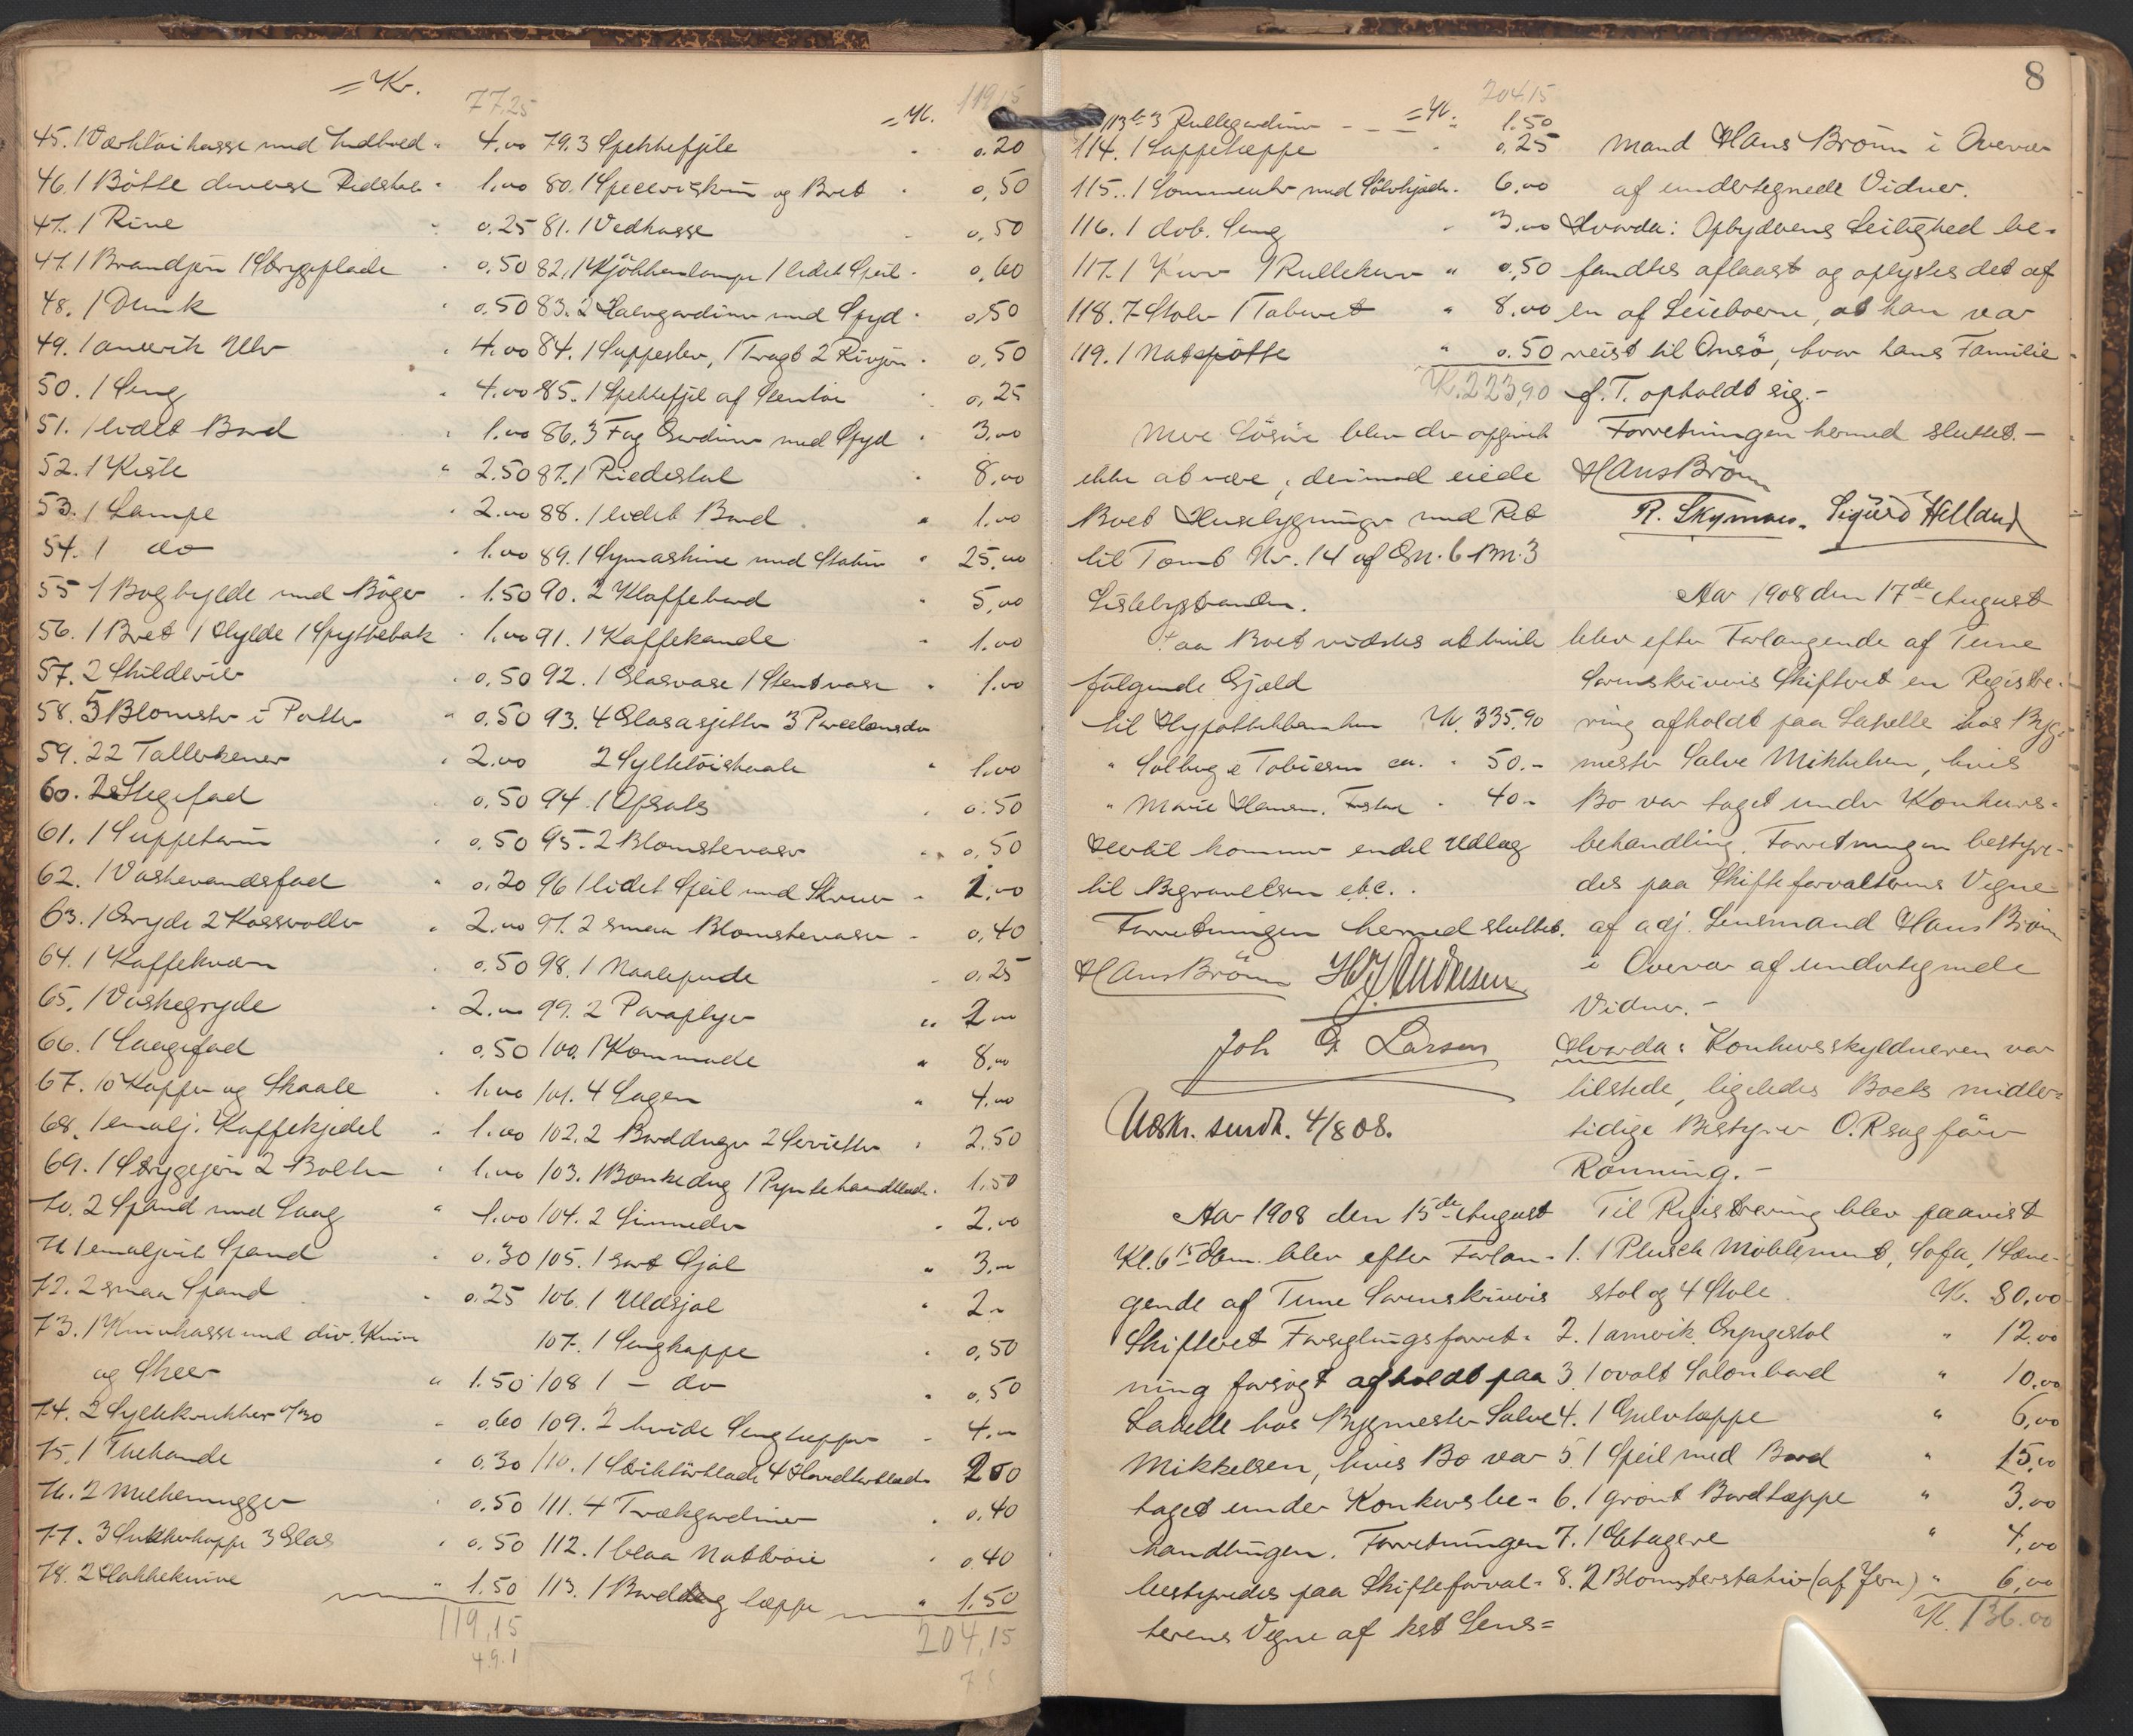 = Kr.
77,25
45. 1 Værktøikasse med Indhold " 4.00
46. 1 Bötte diverse Redskab " 1.00
47. 1 Rive " 0.25
47. 1 Brandjern 1 Strygeplade " 0.50
48. 1 Dunk " 0.50
49. 1 amerik Uhr " 4.00
50. 1 Seng " 4.00
51. 1 lidet Bord " 1.00
52. 1 Kiste " 2.50
53. 1 Lampe " 2.00
54. 1 do " 1.00
55 1 Boghylde med Böger " 1.50
56. 1 Bret 1 Hylde 1 Spyttebak " 1.00
57. 2 Skilderier " 0.50
58. 5 Blomster i Potter " 0.50
59. 22 Tallerkener " 2.00
60. 2 Stegefad " 0.50
61. 1 Suppeterin " 0.50
62. 1 Vaskevandsfad " 0.20
63. 1 Gryde 2 Kasseroller " 2.00
64. 1 Kaffekværn " 0.50
65. 1 Vaskegryde " 2.00
66. 1 Laagefad " 0.50
67. 10 Kopper og Skaale " 1.00
68. 1 emalj. Kaffekjedel " 1.00
69. 1 Strygejern 2 Bolter " 1.00
70. 2 Spand med Laag " 1.00
71 1 emaljert Spand " 0.30
72. 2 smaa Spand " 0.25
73. 1 Knivkasse med div. Knive
og Skeer " 1.50
74. 2 Syltekrukker a/30 " 0.60
75. 1 Thekande " 0.30
76. 2 Melkemugger " 0.50
77. 3 Sukkerkoppe 3 Glas " 0.50
78. 2 Hakkeknive " 1.50
119,15
4.9.1
119,15
= Kr.
79. 3 Spekkefjæle " 0.20
80. 1 og Bret " 0,50
81. 1 Vedkasse " 0,50
82. 1 Kjökkenlampe 1 lidet Speil " 0,60
83. 2 Halvgardiner med Spyd " 0,50
84. 1 Suppeslev, 1 Tragt 2 Rivjern " 0,50
85. 1 Spekkefjel af Stentöi " 0,25
86. 3 Fag Gardiner med Spyd " 3.00
87. 1 Piedestal " 8,00
88. 1 lidet Bord " 1.00
89. 1 Symaskine med Stativ " 25.00
90. 2 Klaffebord " 5,00
91. 1 Kaffekande " 1.00
92. 1 Glasvase 1 Stentvase " 1.00
93. 4 Glasasjetter 3 Porcelænsdo
2 Syltetöiskaale " 1.00
94. 1 Opsats " 0.50
95. 2 Blomstervaser " 0,50
96 1 lidet Speil med Skruer " 1.00
97. 2 smaa Blomstervaser " 0,40
98. 1 Naalepude " 0,25
99. 2 Paraplyer " 2.00
100. 1 Kommode " 8.00
101. 4 Lagen " 4.00
102. 2 Borddúger 2 Servietter " 2.50
103. 1 Bænkedug 1 Pyntehaandklæde " 1.50
104. 2 " 2.00
105. 1 sort Sjal " 3.00
106. 1 Uldsjal " 2.00
107. 1 Sengkappe " 0,50
108 1 - do " 0,50
109. 2 hvide Sengtepper " 4.00
110. 4 " 2 50
111. 4 Trækgardiner " 0.40
112. 1 blaa Nattröie " 0.40
113. 1 Bord teppe " 1.50
204,15
8
204,15
= Kr.
113b 3 Rullegardiner " 1.50
114. 1 Lappeteppe " 0,25
115. 1 Lommeuhr med Sölvkjede " 6,00
116. 1 dob. Seng " 3.00
117. 1 Kurv 1 Rullekurv " 0,50
118. 7 Stoler 1 Taburet " 8,00
119. 1 Natpotte " 0.50
K. 223,90
Mere Lösöre blev der opgivet
ikke at være, derimod eiede
Boet Husebygninger med Ret
til Tomt Nr. 14 af Gn. 6 Bn. 3
Lislebystranden.
Paa Boet vidstes at hvile
fölgende Gjæld
til Hypotekbanken Kr. 335,90
" Solberg & Tobiesen ca. " 50.-
" Marie Hansen. " 40-
Hertil kommer endel Udlæg
til Begravelsen etc..
Forretningen hermed sluttet.
Hans Brönn H J Andresen
Joh G. Larsen
Udskr. sendt. 4/8 08.
Aar 1908 den 15de August
Kl. 6 15 Em. blev efter Forlan-
gende af Tune Sorenskriveris
Skifteret Forseglingsforret-
ning forsögt afholdt paa
Labelle hos Bygmester Salve
Mikkelsen, hvis Bo var
taget under Konkursbe-
handlingen. Forretningen
bestyredes paa Skifteforval-
terens Vegne af kst Lens=
mand Hans Brönn i Overvær
af undertegnede Vidner.
Hvorda: Opbyderens Leilighed be-
fandtes aflaast og oplystes det af
en af Leieboerne, at han var
reist til Onsö, hvor hans Familie
f. T. opholdt sig.-
Forretningen hermed sluttet.-
Hans Brönn
R. Skymoen. Sigurd Helland
Aar 1908 den 17de August
blev efter Forlangende af Tune
Sorenskriveris Skifteret en Registre-
ring afholdt paa Labelle hos Byg-
mester Salve Mikkelsen, hvis
Bo var taget under Konkurs-
behandling. Forretningen bestyre-
des paa Skifteforvalterens Vegne
af adj. Lensmand Hans Brönn
i Overvær af undertegnede
Vidner.-
Hvorda: Konkursskyldneren var
tilstede, ligeledes Boets midler-
tidige Bestyrer O.R.sagförer
Rönning.-
Til Registrering blev paavist
1. 1 Plusch Möblement, Sofa, 1 Læne-
stol og 4 Stole. Kr. 80,00
2. 1 amerik. Gyngestol " 12.00
3. 1 ovalt Salonbord " 10,00
4. 1 Gulvteppe " 6,00
5. 1 Speil med Bord " 15,00
6. 1 grönt Bordteppe " 3.00
7. 1 Etagere " 4,00
8. 2 Blomsterstativ (af Jern) " 6,00
Kr. 136.00